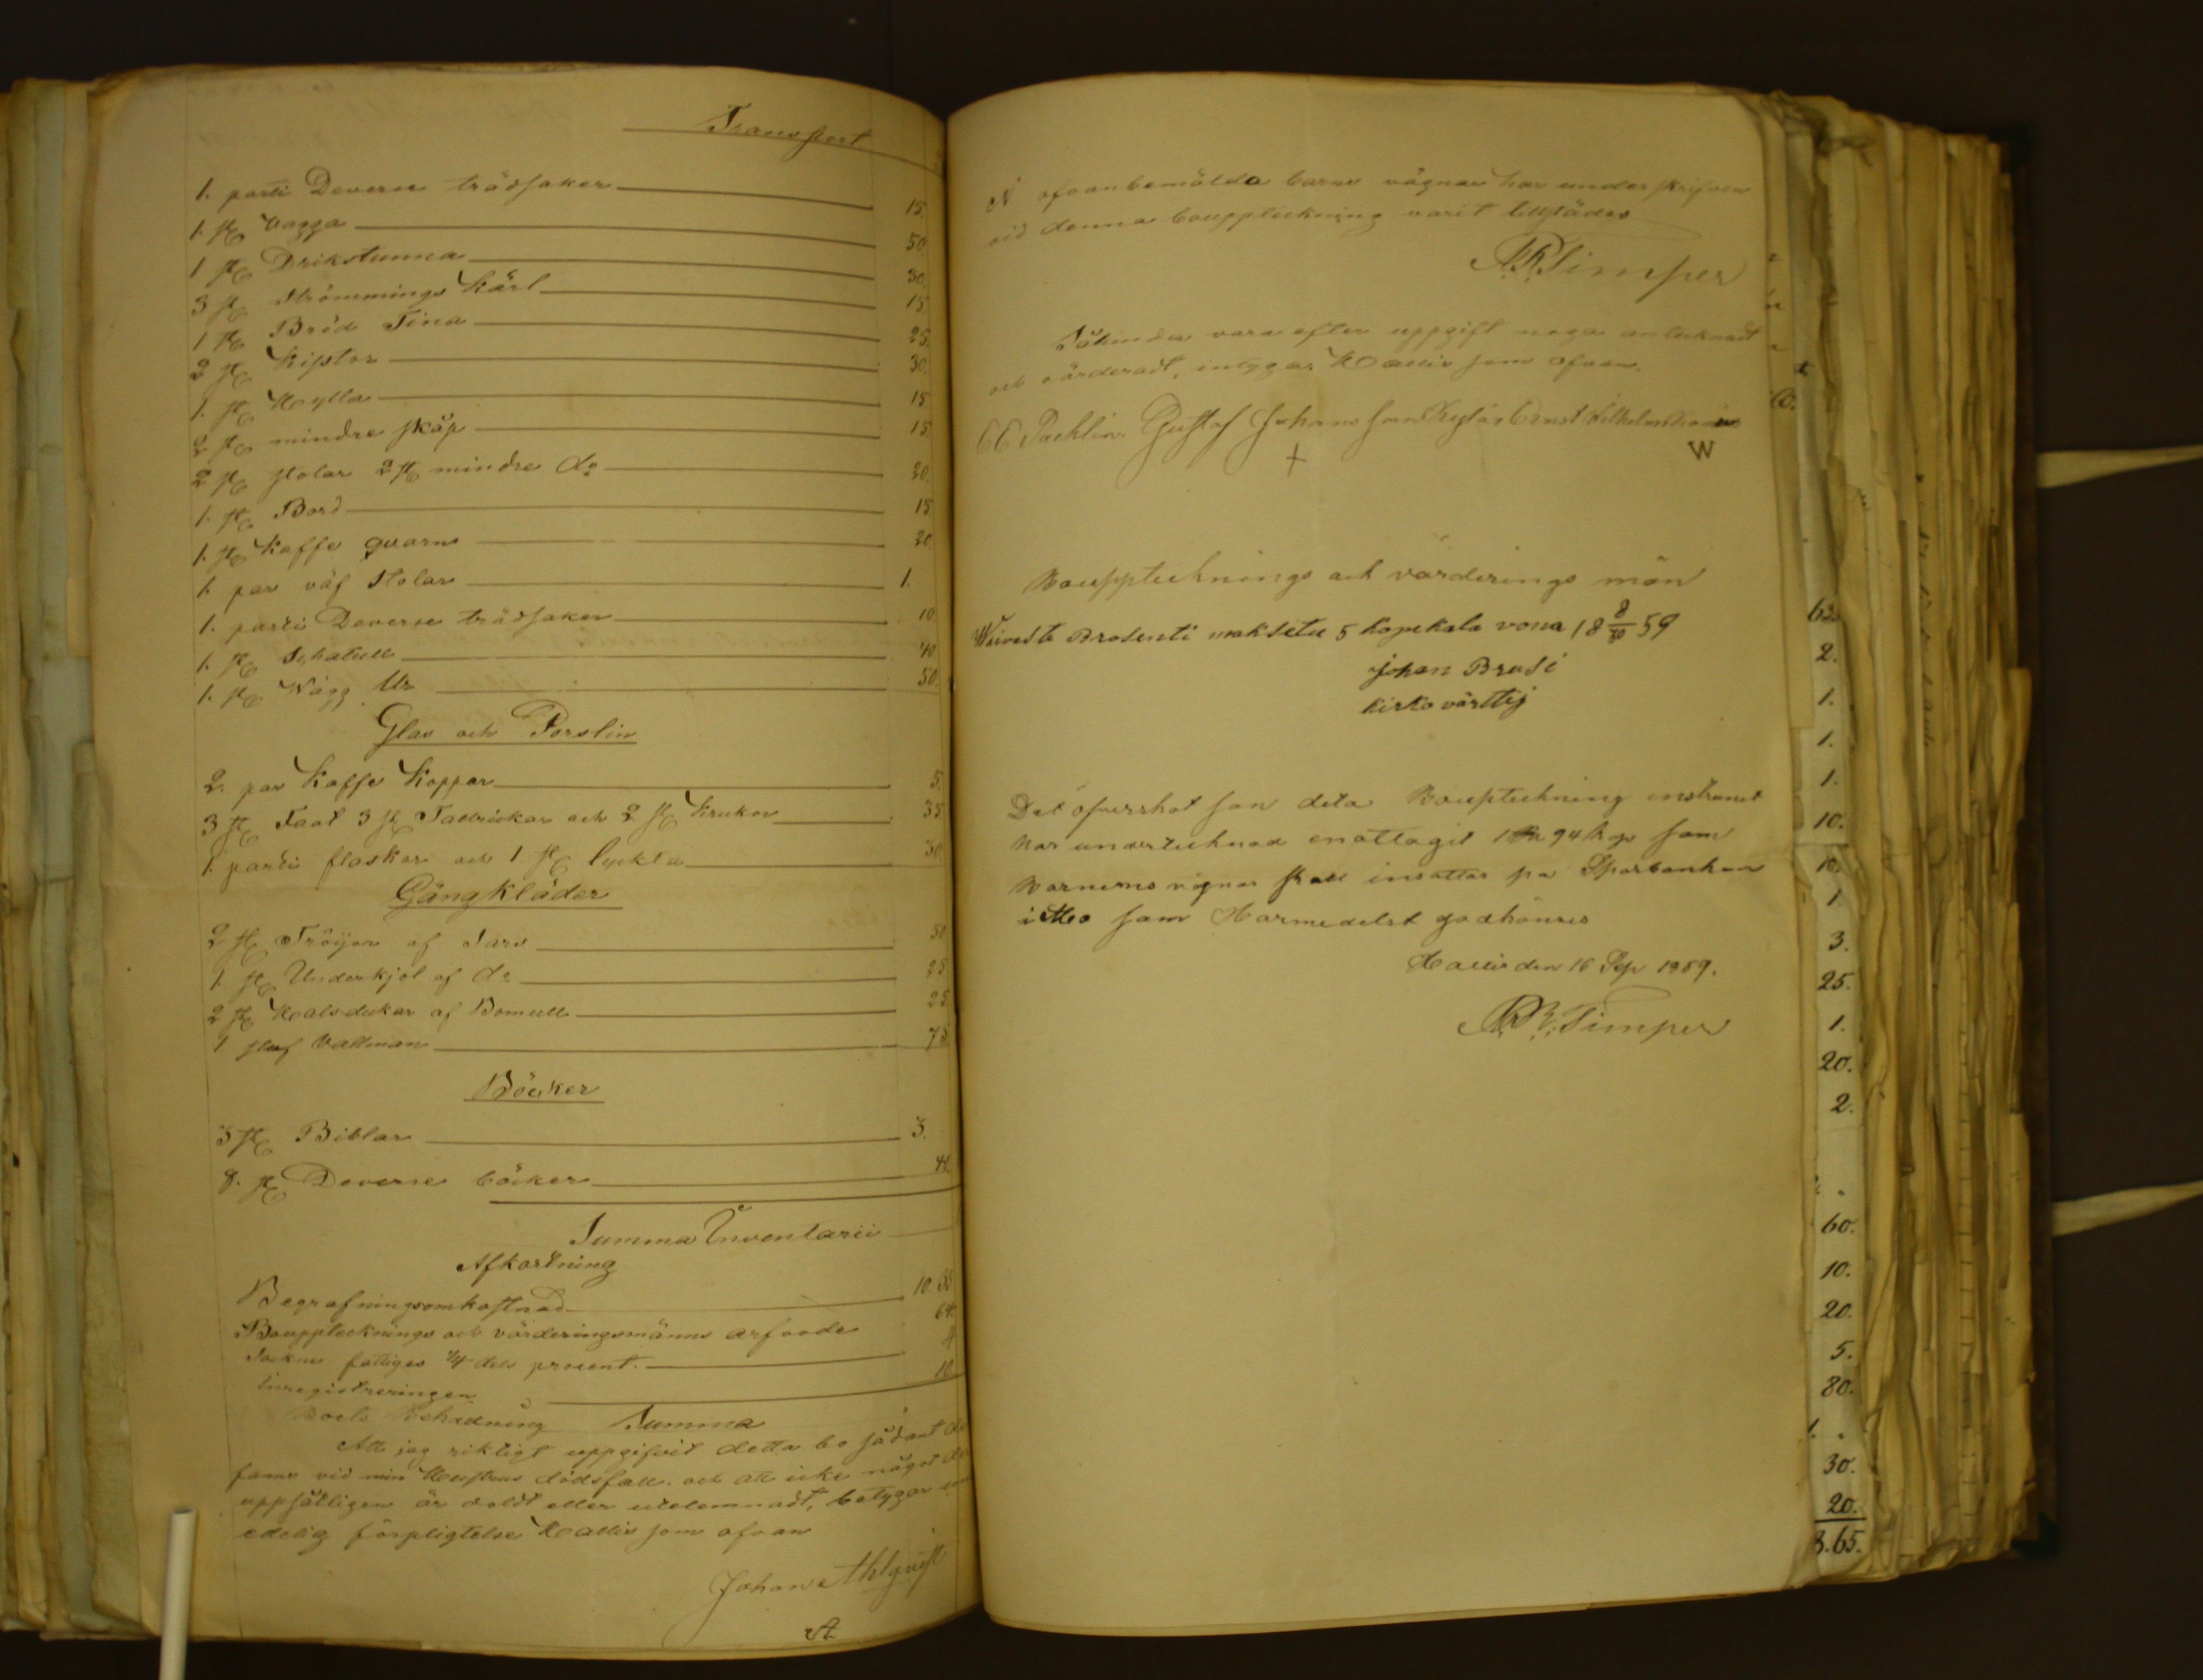 Transport
1. parti Deverse trädsaker 15.
1. st Vagga 50.
1 st Drikstunna 30.
3 st Strömmings Kärl 15.
1 st Bröd Tina 25.
2 st Kistor 30.
1. st Hylla 15
2 st mindre skåp 15.
2 st stolar 2 st mindre do 20.
1. st Bord 15
1. st Kaffe quarn 20
1. par väf stolar 1.
1. parti Deverse trädsaker 10
1. st Schatull 40
1. st Wägg Ur 50.
Glas och Porslin
2. par Kaffe Koppar 5.
3 st Faat 3 st Tallrickar och 2 st Krukor 35
1. parti flaskor och 1. st lyckta 30.
Gångkläder
2 st Tröijor af Sars 50
1. st Underkjol af do 25
2 st Halsdukar af Bomull 25
1. stuf Vallman 75
Böcker
3 st Biblar 3.
8. st Deverse böcker 40.
Summa Inventarii
Afkortning
Begrafningsomkostnad 10.
Bouppteknings och värderingsmänns arfvode 64.
Sockne fattiges 1/4 dels procent. 4
Inregistreringen 10
Boets Behållning Summa
Att jag riktigt uppgifvit detta bo sådant det
fanns vid min Hustrus dödsfall. och att icke något der
uppsåtligen är doldt eller utelemnadt, betygar
edelig förpligtelse Hallis som ofvan
Johan Ahlquist
A
å ofvanbemälda barns vägnar har underskrifven
vid denna bouppteckning varit tillstädes
A.R. Timper
Sålunda vara efter uppgift noga antecknadt
och värderadt, intygar Hallis som ofvan.
CE Packlin. Gustaf Johansson Ernst Vilhelm
+ W
Boupptecknings och värderings män
Waivaste Brosenti maksetu 5 Kopekala vona 18 8/30 59
Johan Brusi
kirko värttij
Det öfverskot som deta Bouptekning
har undertecknad emottagit 1 R 94 kop som
Barnens vägnar skall insattas på Sparbanken
i Åbo som Harmedelst godkännes
Hallis den 16 Sep 1859.
A.R. Timper
62.
2.
1.
1.
1.
10.
10.
1.
3.
25.
1.
20.
2.
60.
10.
20.
5.
80.
1.
30.
20.
8.65.